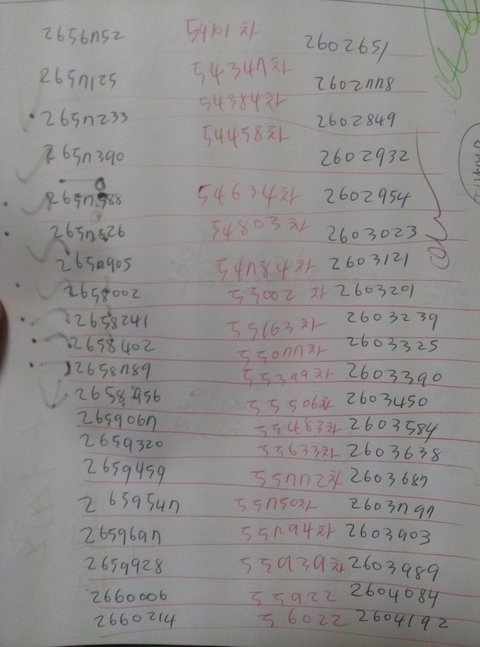 2656752 54101차 2602651
2657125 54347차 2602778
2657233 54384차 2602849
2657390 54458차 2602932
2657588 54634차 2602954
2657826 54803차 2603023
2657905 54784차 2603121
2658002 55002 차 2603201
2658241 55163차 2603239
2658402 55077차 2603325
2658789 55399차 2603390
2658956 55506차 2603450
2659067 55483차 2603584
2659320 55633차 2603638
2659459 55772차 2603687
2659547 55750차 2603797
2659697 55794차 2603903
2659928 55939차 2603989
2660006 55922 2604084
2660214 56022 2604192